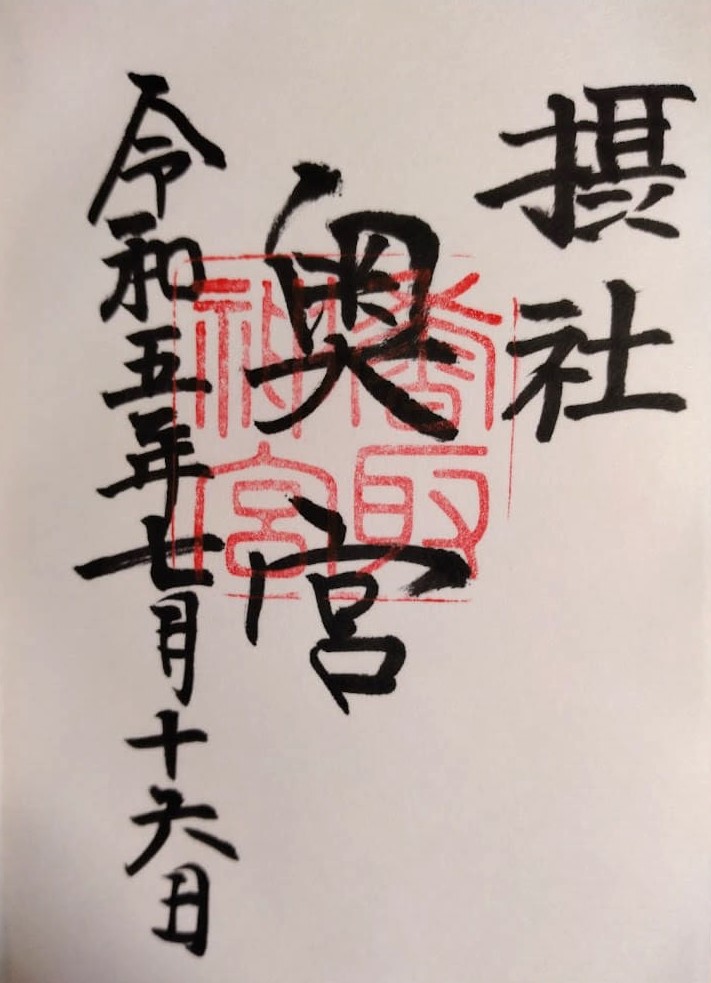 摂社
奥宮
香取
神宮
令和五年七月十六日